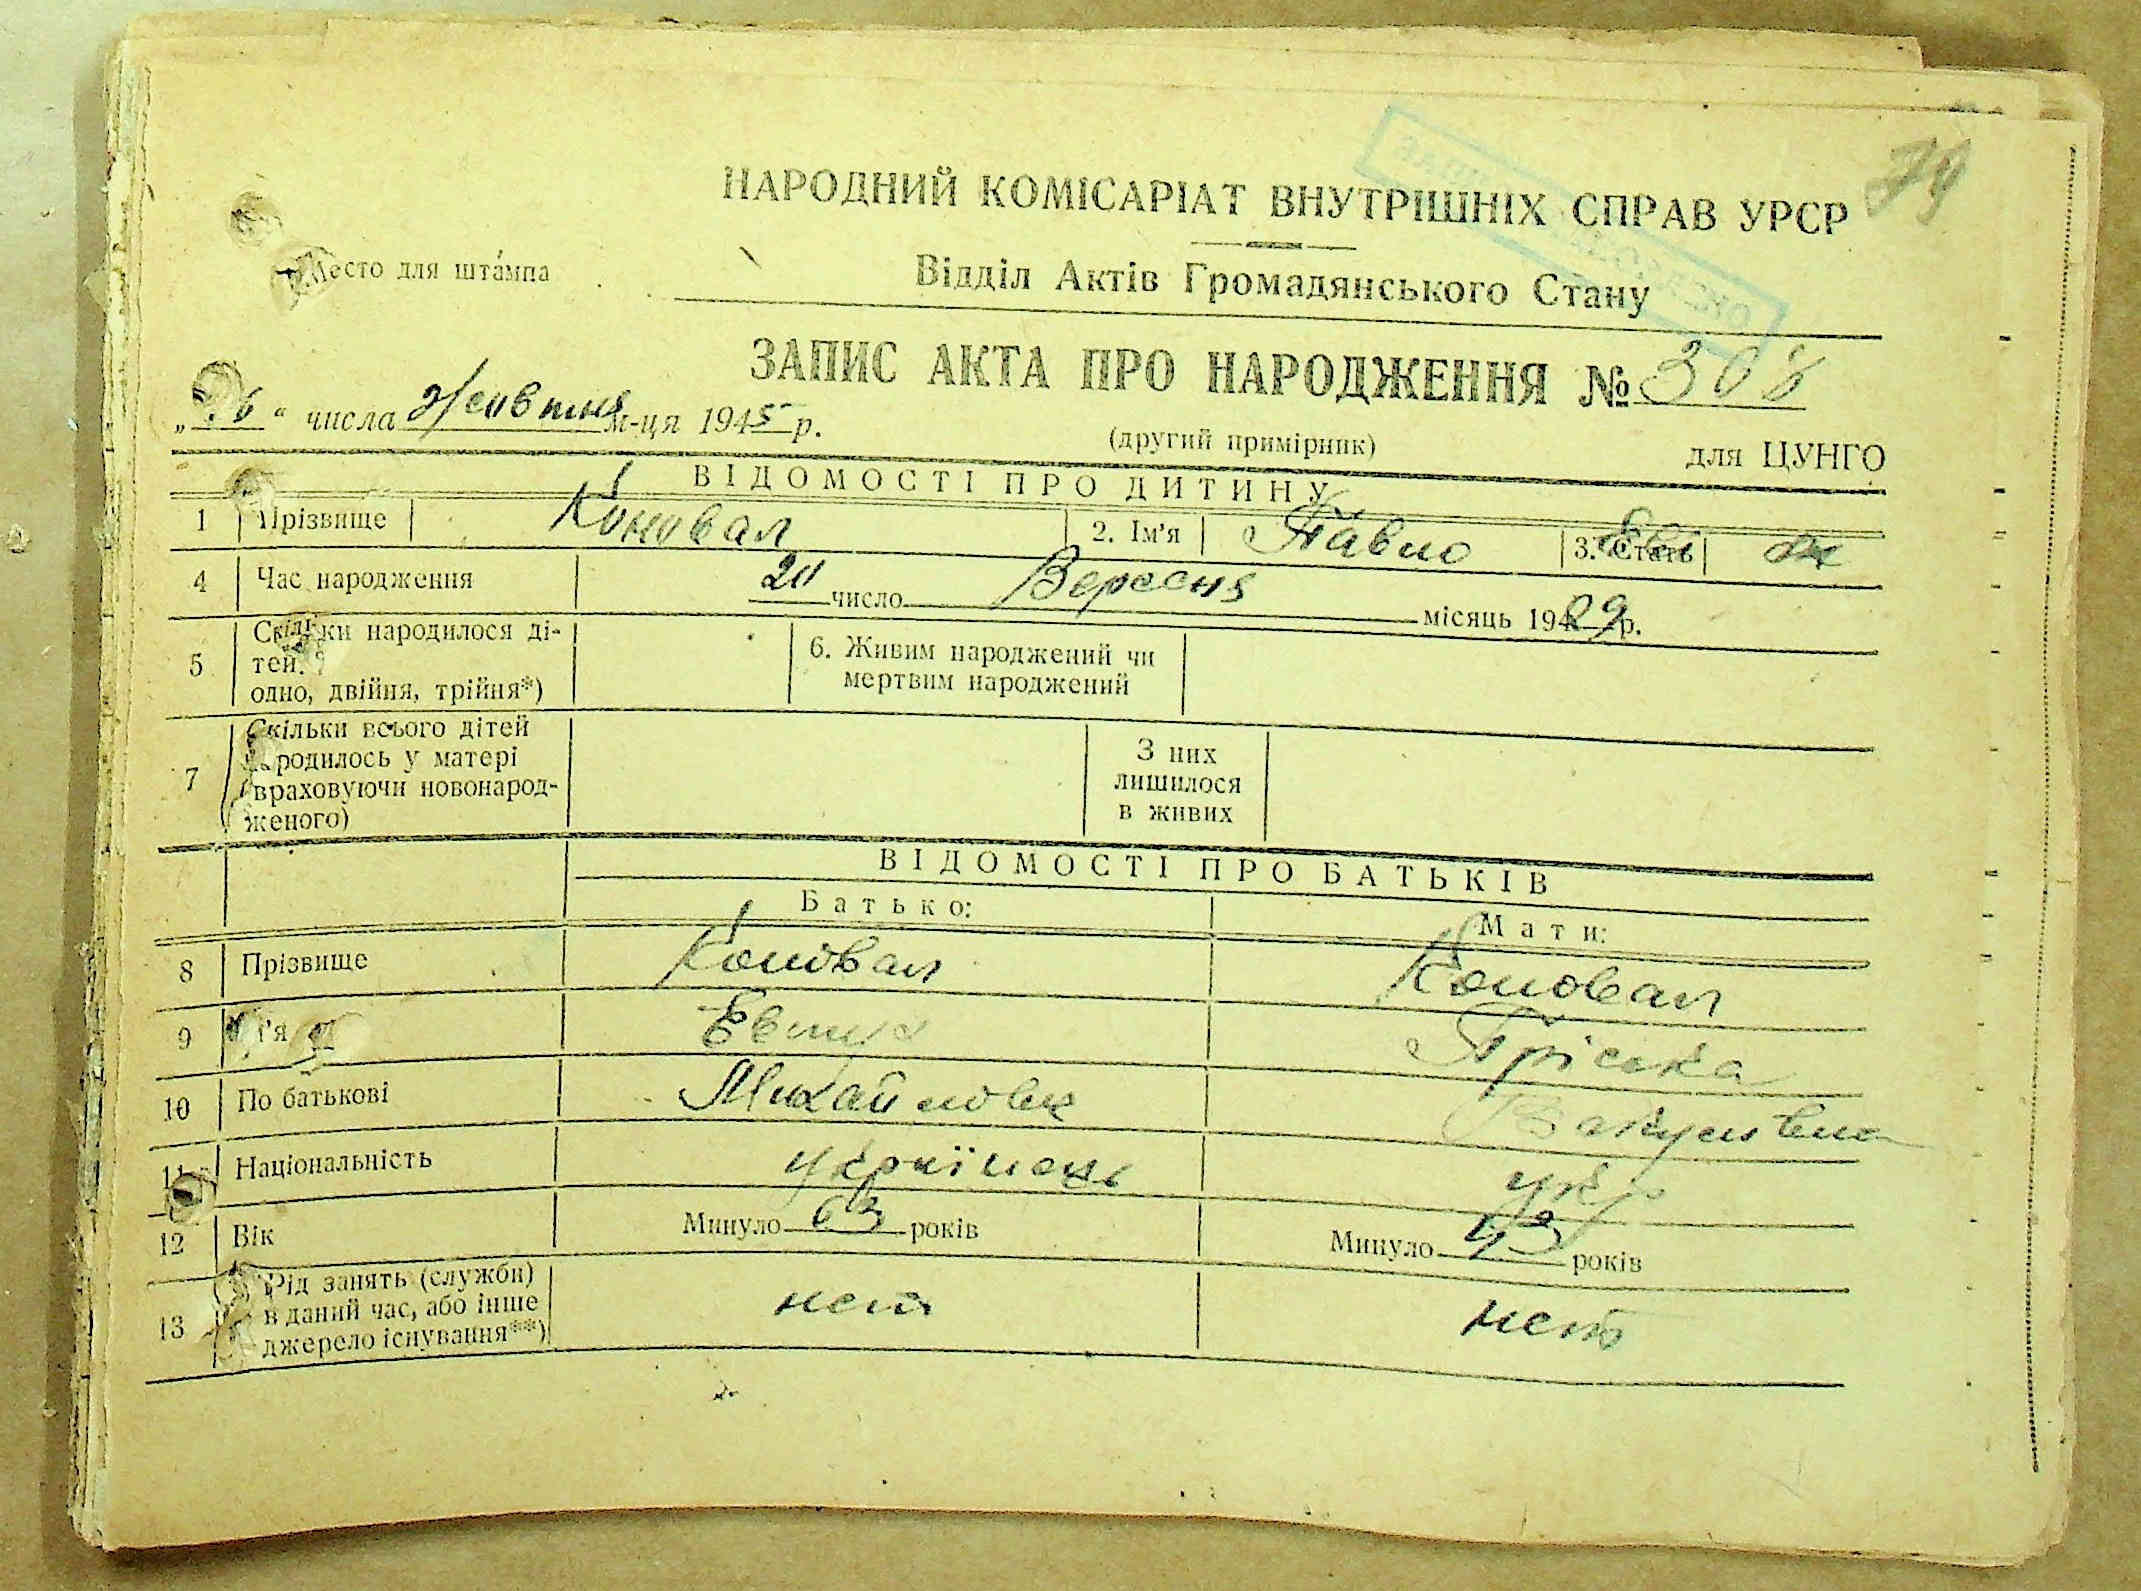 НАРОДНИЙ КОМІСАРІАТ ВНУТРІШНІХ СПРАВ УРСР
Место для штампа
Відділ Актів Громадянського Стану
ЗАПИС АКТА ПРО НАРОДЖЕННЯ № 308
числа Жовтня м-ця 1945 р.
(другий примірник)
для ЦУНГО
ВІДОМОСТІ ПРО ДИТИНУ
1 Прізвище Коновал 2. Ім'я Павло 3. Стать
4 Час народження 20 число Вересня місяць 1929 р.
5 Скільки народилося ді-
тей.
одно, двійня, трійня*)
6. Живим народжений чи
мертвим народжений
7 Скільки всього дітей
родилось у матері
(враховуючи новонарод-
женого)
З них
лишилося
в живих
ВІДОМОСТІ ПРО БАТЬКІВ
Батько: Мати:
8 Прізвище Коновал Коновал
9 Ім'я Евтух Пріська
10 По батькові Михайлович Вакулівна
11 Національність Українець укр
12 Вік Минуло 63 років Минуло 43 років
13 Рід занять (служби)
в даний час, або інше
джерело існування**)
нет нет